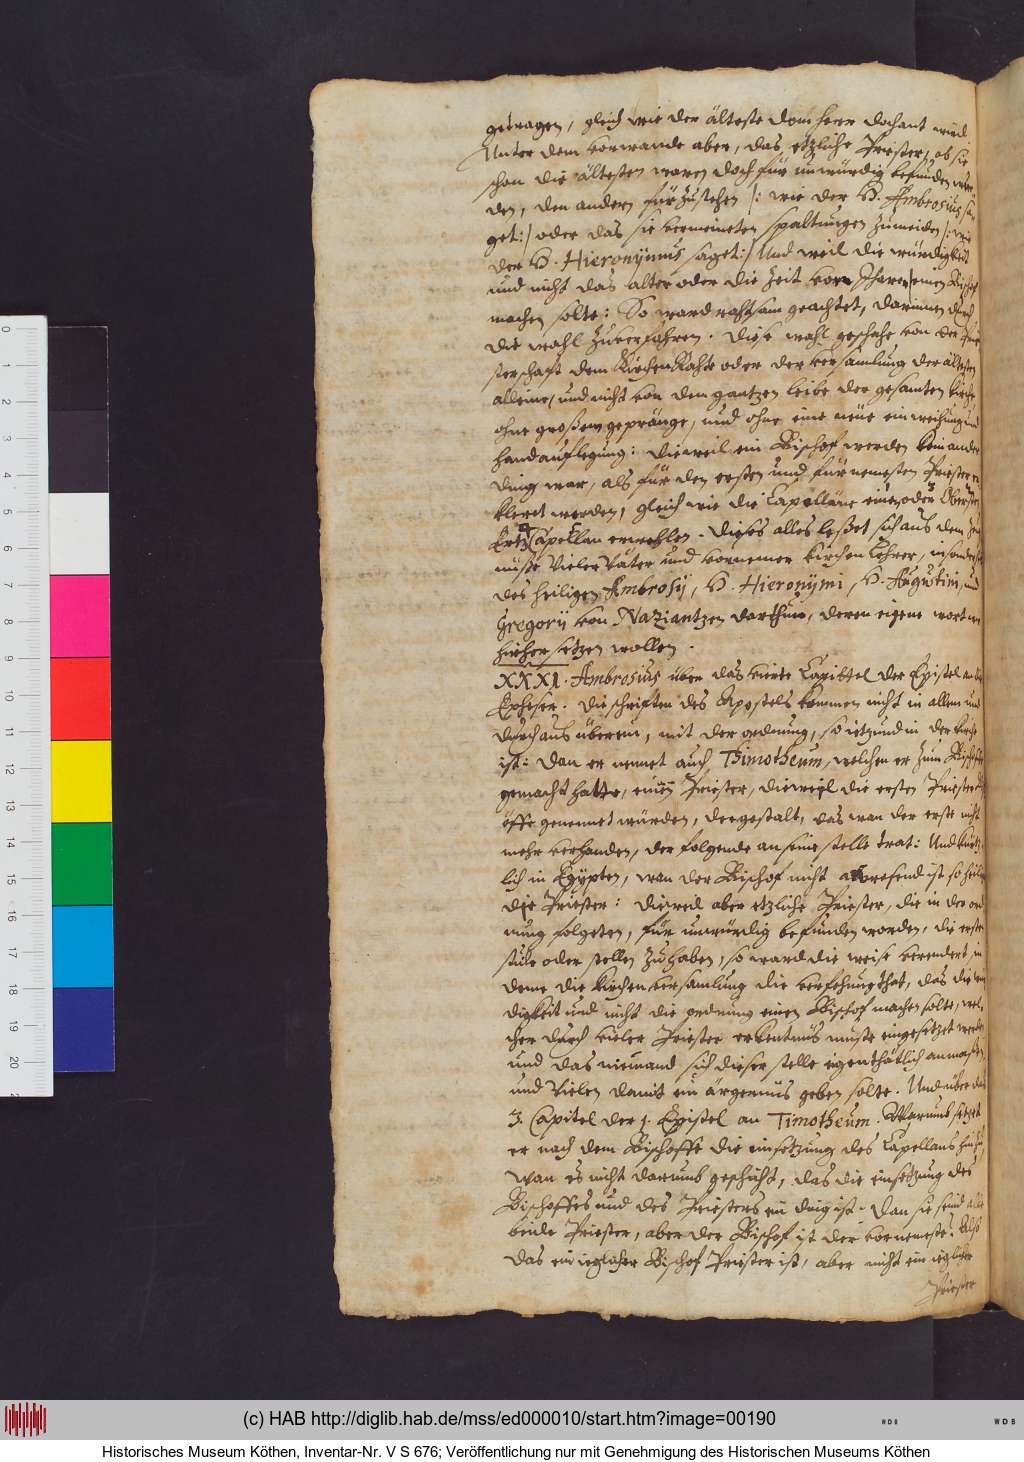 getragen, gleich wie der älteste dom herr dechant wird
Unter dem vorwande aber, das etzliche Priester, ob sie
schon die ältesten waren doch für unwürdig befunden wür
den, den andern fürzustehen /: wie der H. Ambrosius sa
get:/ oder das sie vermeineten spaltungen zumeiden /: wie
der H. Hieronymus saget:/ Und weil die würdigkeit
und nicht das alter oder die zeit von Jharen einen Bischof
machen solte: So ward rahtsam geachtet, darinnen durch
die wahl zuverfahren. Diese wahl geschahe von der Prie
sterschaft dem KirchenRahte oder der versamlung der ältesten
alleine, und nicht von dem gantzen leibe der gesamten kirche
ohne großem gepränge, und ohne eine neüe einweihung und
handauflegung: dieweil ein Bischof werden kein ander
ding war, als für den ersten und fürnemesten Priester er
kleret werden, gleich wie die Capelläne einen oder Obersten
ErtzCapellan erwehlen. Dieses alles leßet sich aus dem zeug
nüße vieler Väter und vornemer kirchen Lehrer, insonderheit
des heiligen Ambrosij, H. Hieronymi, H. Augustini, und
Gregorij von Naziantzen darthun, deren eigene wort wir
hieher setzen wollen.
XXXI. Ambrosius über das vierte Capittel der Epistel an die
Epheser. Die schriften des Apostels kommen nicht in allem und
durchaus überein, mit der ordnung, so ietzund in der kirche
ist: dan er nennet auch Timotheum, welchen er zum Bischoffe
gemacht hatte, einen Priester, dieweil die ersten Priester Bisch
öffe genennet würden, dergestalt, das wan der erste nicht
mehr verhanden, der folgende an seine stelle trat: Und
lich in Egypten, wan der Bischof nicht anwesend ist so
die Priester: dieweil aber etzliche Priester, die in der ord
nung folgeten, für unwürdig befunden worden, die erste
stüle oder stellen zuhaben, so ward die weise verendert, in
deme die kirchen versamlung die versehung that, das die wür
digkeit und nicht die ordnung einen Bischof machen solte, wel
cher durch vieler Priester erkentnüs müste eingesetzet werden
und das niemand sich dieser stelle eigenthätlich anmaßen
und vielen damit ein ärgernüs geben solte. Und über das
3. Capitel der 1. Epistel an Timotheum. Warumb setzet
er nach dem Bischoffe die einsetzung des Capellans hinzu,
wan es nicht darumb geschicht, das die einsetzung des
Bischoffes und des Priesters ein ding ist. Dan sie seind alle
beide Priester, aber der Bischof ist der vornemeste: Also
das ein ieglicher Bischof Priester ist, aber nicht ein ieglicher
Priester
0
1
2
3
4
5
6
7
8
9
10
11
12
13
14
15
16
17
18
19
20
(c) HAB http://diglib.hab.de/mss/ed000010/start.htm?image=00190
Historisches Museum Köthen, Inventar-Nr. V S 676; Veröffentlichung nur mit Genehmigung des Historischen Museums Köthen